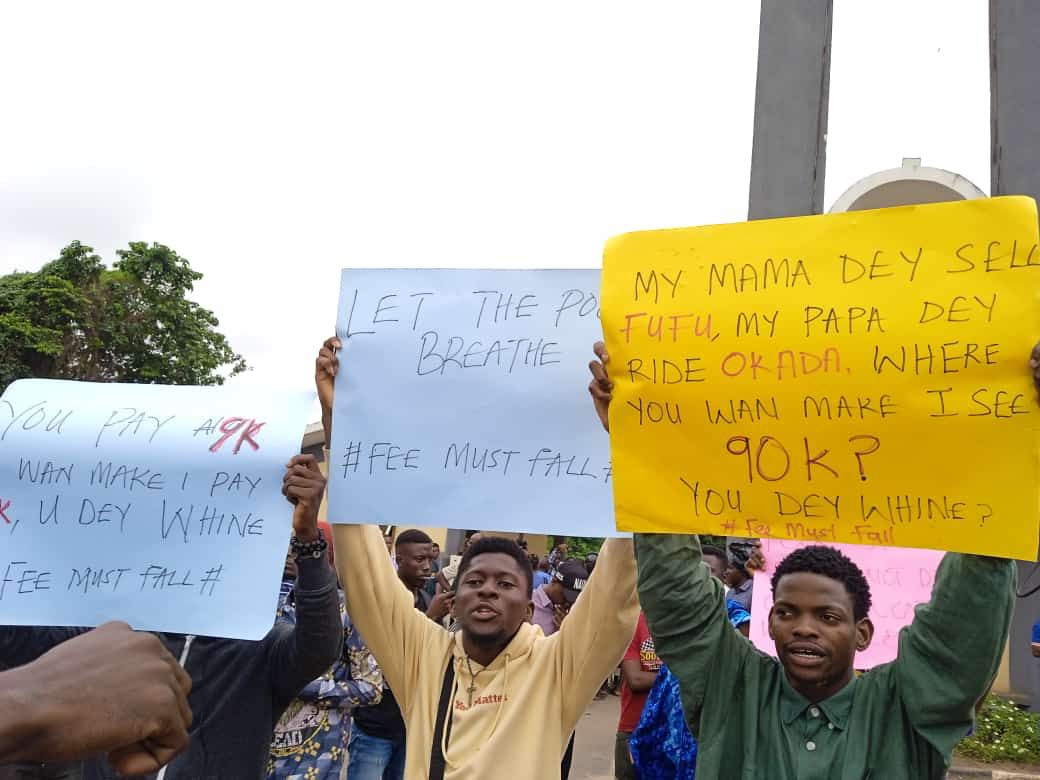 YOU PAY ₦9K
WAN MAKE I PAY
K, U DEY WHINE
FEE MUST FALL#
LET THE POO
BREATHE
#FEE MUST FALL#
MY MAMA DEY SELL
FUFU, MY PAPA DEY
RIDE OKADA. WHERE
YOU WAN MAKE I SEE
90K?
YOU DEY WHINE?
#Fee Must Fall
You Matter